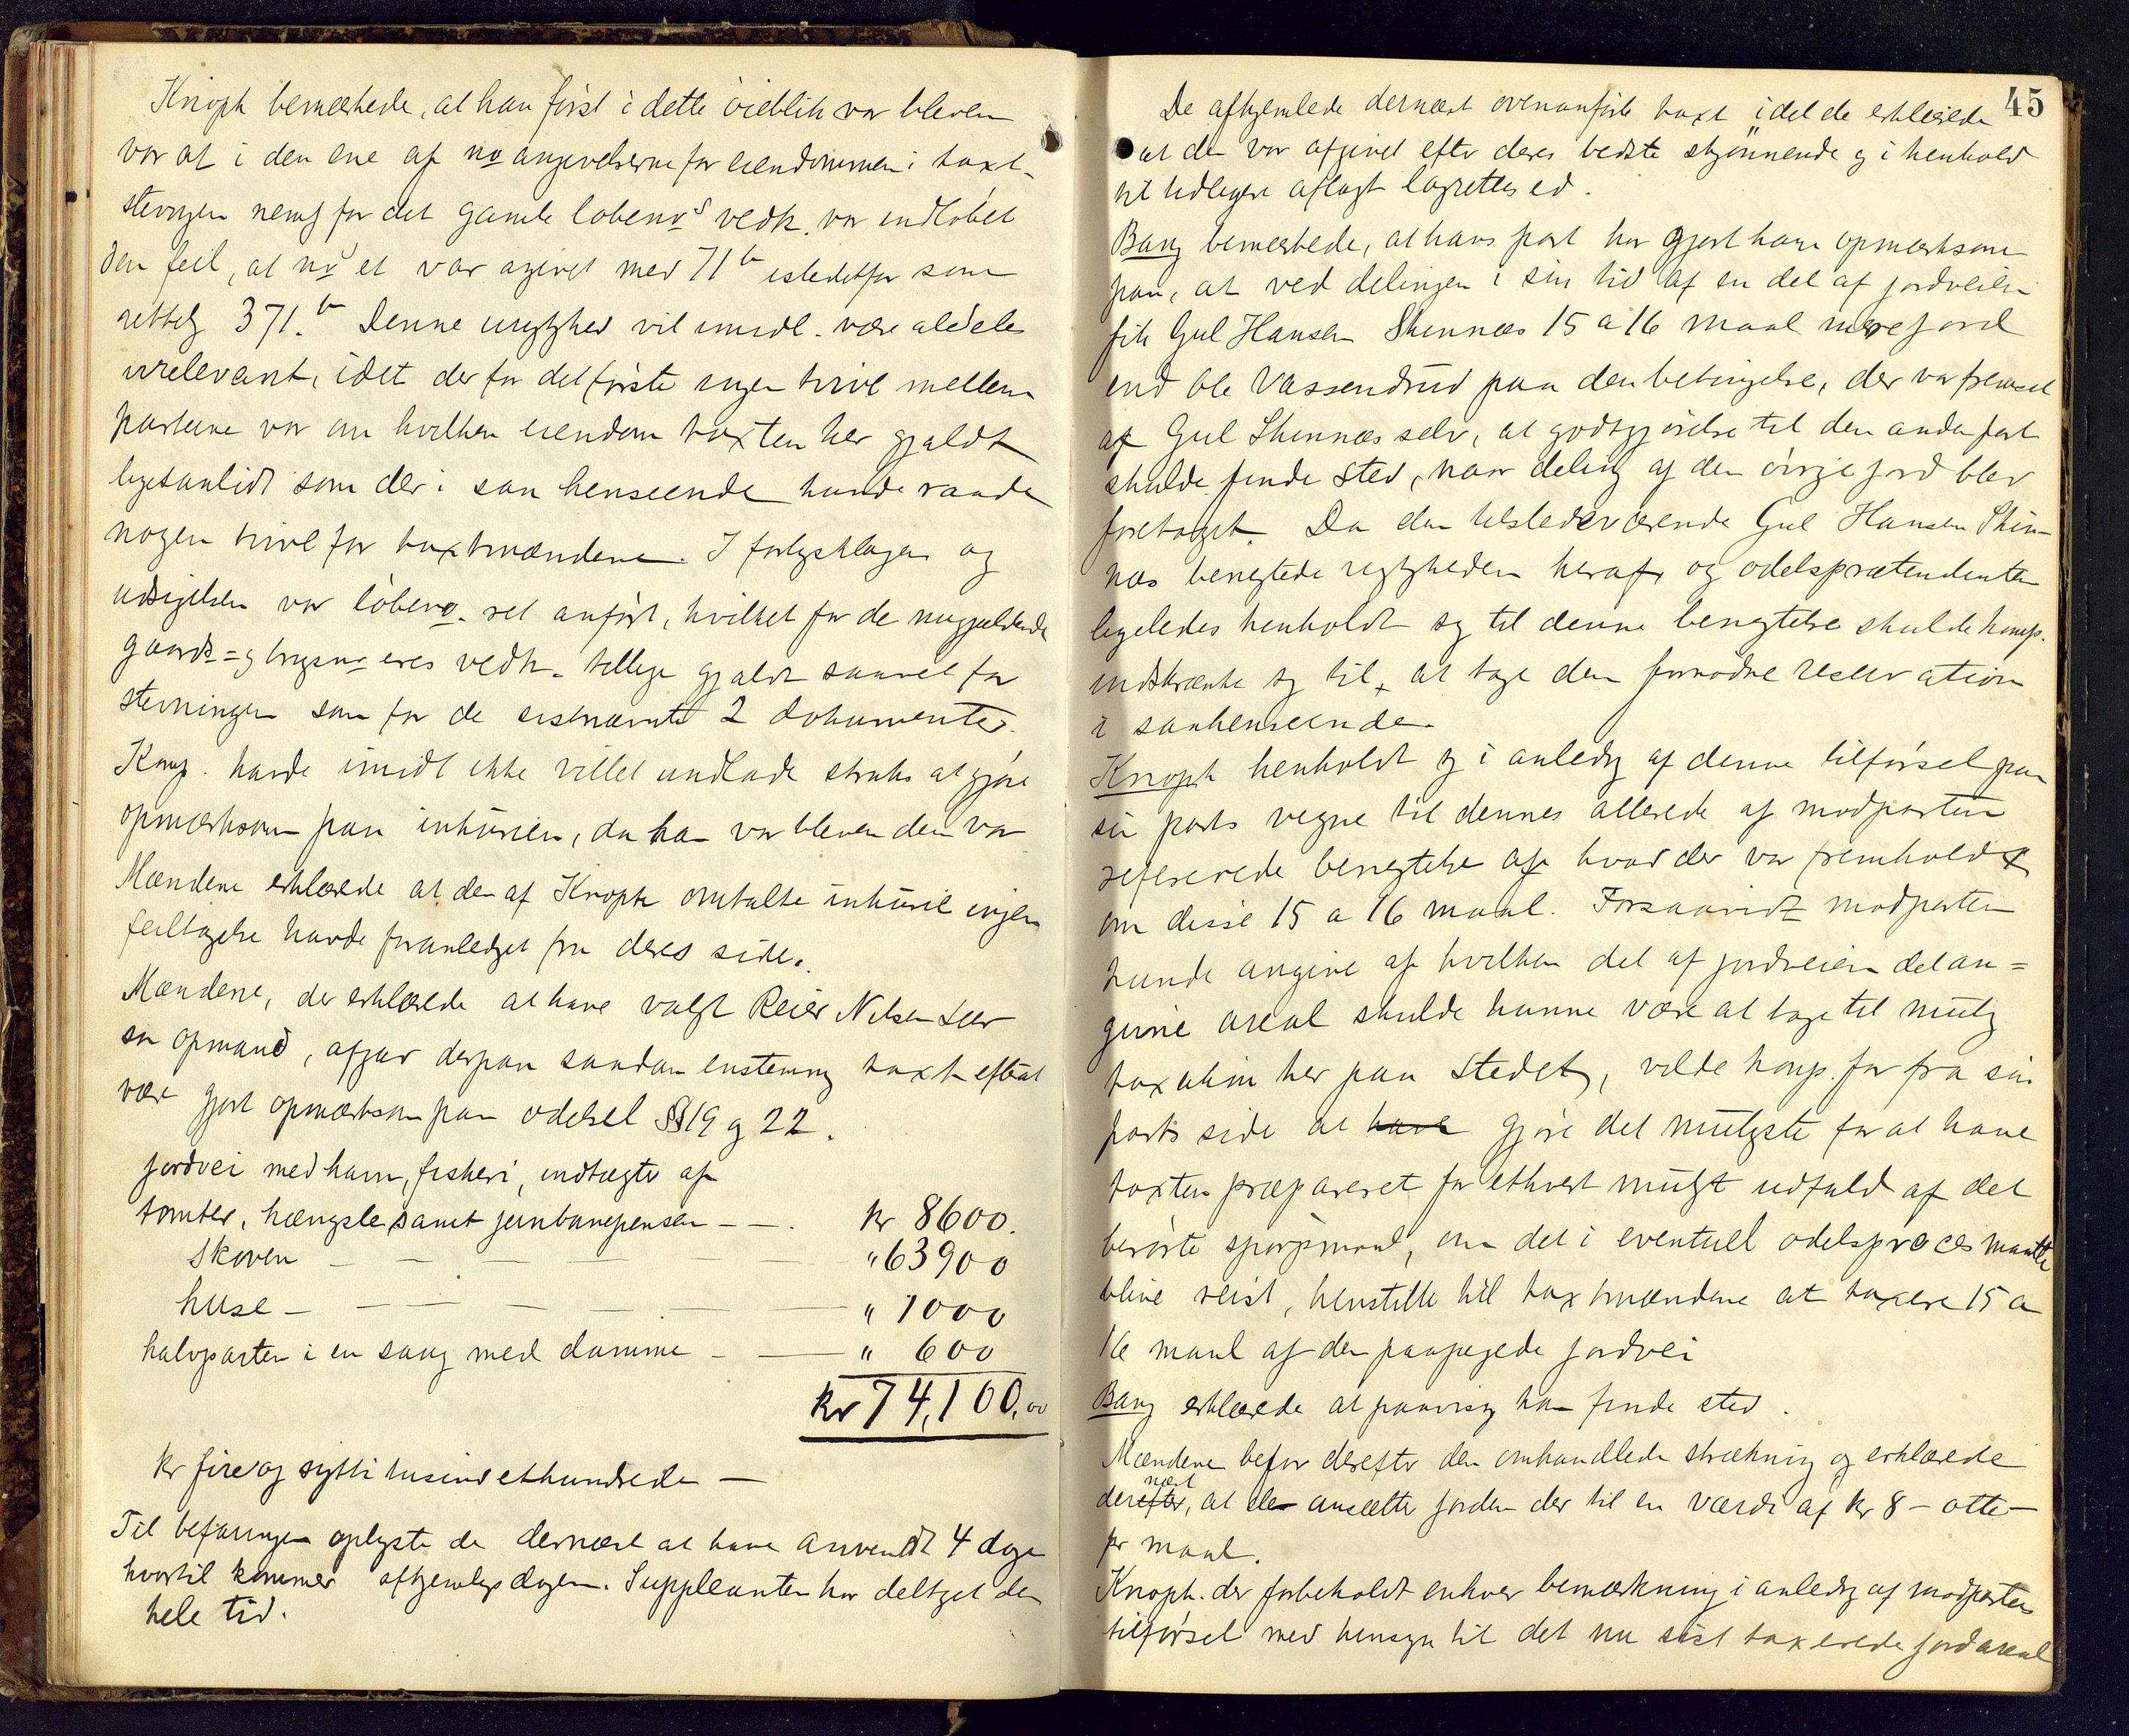 Knoph bemærkede, at han først i dette øieblik var bleven
var at i den ene af no angivelserne for eiendommen i taxt-
stevningen nemlig for det gamle løbenrs vedk. var indløbet
den feil, at nr et var agivet med 71 b istedetfor som
rettelig 371. b Denne urigtighed vil imidl. være aldeles
irrelevant, idet der for det første ingen tvivl mellem
parterne var om hvilken eiendom taxten her gjaldt
ligesaalidt som der i saa henseende kunde raade
nogen tvivl for taxtmændene. I forligsklagen og
udsigelsen var løbeno. ret anført, hvilket for de nugjældende
gaards- og brugsnr eres vedk. tillige gjaldt saavel for
stevningen som for de sistnævnte 2 dokumenter.
Komp. havde imidl ikke villet undlade straks at gjøre
opmærksom paa inkurien, da han var bleven den var
Mændene erklærede at den af Knoph omtalte inkurie ingen
feiltagelse havde foranlediget fra deres side.
Mændene, der erklærede at have valgt Reier Nilsen Lier
som opmand, afgav derpaa saadan enstemmig taxt efterat
være gjort opmærksom paa odelsl §§19 og 22.
Jordvei med havn, fiskeri, indtægter af
tomter, hængsle samt jernbanepensen - - . kr 8600.
Skoven - - - - - " 63900
huse - - - - - - " 1000
halvparten i en saug med damme - - " 600
kr 74,100,00
kr fire og sytti tusind ethundrede —
Til befaringen oplyste de dernæst at have anvendt 4 dage
hvortil kommer afhjemlingsdagen. Suppleanten har deltaget den
hele tid.
45
De afhjemlede dernæst ovenanførte taxt idet de erklærede
at den var afgivet efter deres bedste skjønnende og i henhold
til tidligere aflagt lagrettesed.
Bang bemærkede, at hans part har gjort ham opmærksom
paa, at ved delingen i sin tid af en del af jordveien
fik Gul Hansen Skinnæs 15 a 16 maal mere jord
end Ole Vassendrud paa den betingelse, der var fremsat
af Gul Skinnæs selv, at godtgjørelse til den anden part
skulde finde sted, naar deling af den øvrige jord blev
foretaget. Da den tilstedeværende Gul Hansen Skin-
næs benegtede rigtigheden heraf og odelsprætendenten
ligeledes henholdt sig til denne benegtelse skulde komp.
indskrænke sig til at tage den fornødne reservation
i saa henseende.
Knoph henholdt sig i anledng af denne tilførsel paa
sin parts vegne til dennes allerede af modparten
refererede benegtelse af hvad der var fremholdt
om disse 15 a 16 maal. Forsaavidt modparten
kunde angive af hvilken del af jordveien det an=
givne areal skulde kunne være at tage til mulig
taxation her paa stedet, vilde komp. for fra sin
parts side at have gjøre det muligste for at have
taxten præpareret for ethvert muligt udfald af det
berørte spørgsmaal, om det i eventuel odelsproces maatte
blive reist, henstille til taxtmændene at taxere 15 a
16 maal af den paapegede jordvei
Bang erklærede at paavisng kan finde sted.
Mændene befor derefter den omhandlede strækning og erklærede
derefter næst, at de ansætter jorden der til en værdi af kr 8 – otte –
pr maal.
Knoph. der forbeholdt enhver bemærkning i anledng af modpartens
tilførsel med hensyn til det nu sist taxerede jordareal